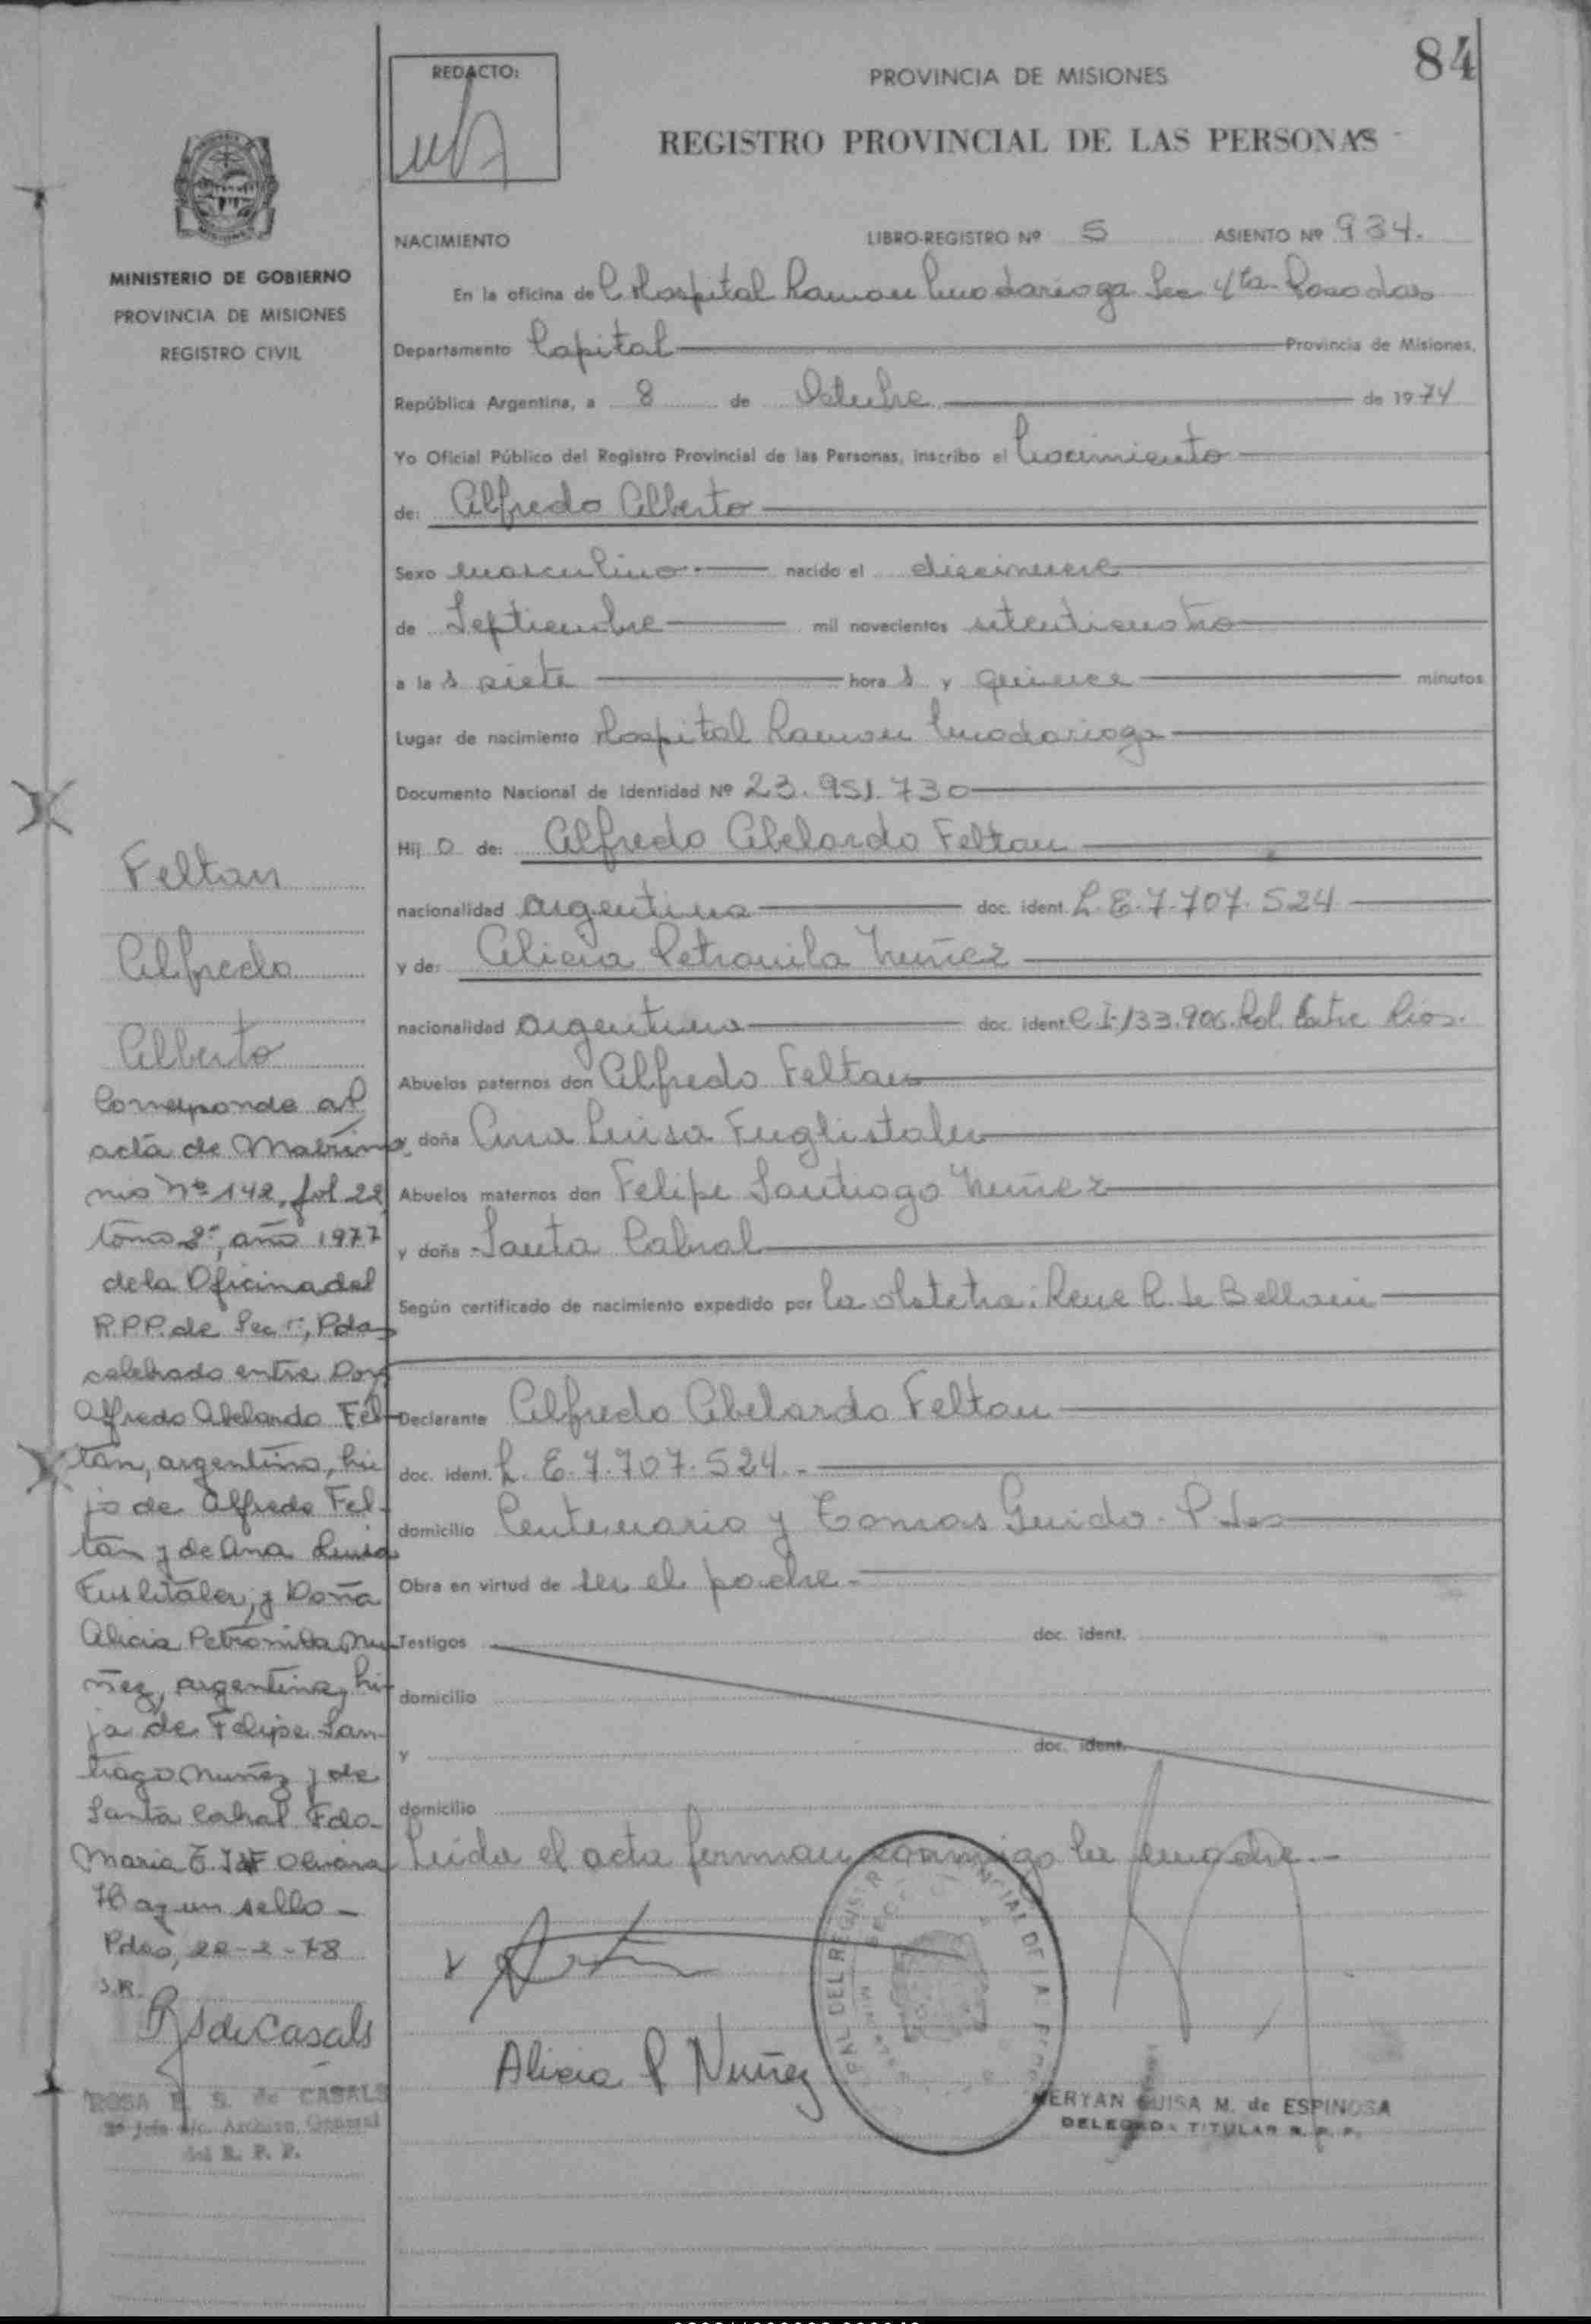 84
REDACTO:
PROVINCIA DE MISIONES
REGISTRO PROVINCIAL DE LAS PERSONAS
NACIMIENTO LIBRO-REGISTRO Nº 5 ASIENTO Nº 934.
MINISTERIO DE GOBIERNO
PROVINCIA DE MISIONES
REGISTRO CIVIL
En la oficina del Hospital Ramon Madariaga Sec 4ta Posadas
Departamento Capital Provincia de Misiones,
República Argentina, a 8 de Octubre de 1974
Yo Oficial Público del Registro Provincial de las Personas, inscribo el Nacimiento
de: Alfredo Alberto
Sexo masculino.- nacido el diecinueve
de Septiembre mil novecientos setenticuatro
a las siete horas y quince minutos
Lugar de nacimiento Hospital Ramon Madariaga
Documento Nacional de Identidad Nº 23.951.730
Hijo de: Alfredo Abelardo Feltan
nacionalidad argentina doc. ident. L.E.7.707.524
y de: Alicia Petronila Nuñez
nacionalidad argentina doc. ident C.I-133.906.Pol. Entre Rios.
Abuelos paternos don Alfredo Feltan
y doña Ana Luisa Fuglistaler
Abuelos maternos don Felipe Santiago Nuñez
y doña Santa Cabral
Según certificado de nacimiento expedido por la obstetra: Rene R. de
Declarante Alfredo Abelardo Feltan
doc. ident. L.E.7.707.524.-
domicilio Centenario y Tomas Guido. Pdas
Obra en virtud de ser el padre.-
Testigos doc. ident.
domicilio
y doc. ident.
domicilio
Leida el acta firman conmigo la madre.-
Alicia P Nuñez
MERYAN LUISA M. de ESPINOSA
DELEGADA TITULAR R. P. P.
Feltan
Alfredo
Alberto
Corresponde al
acta de Matrimo
nio Nº 142, fol 22
tomo 2º, año 1977
de la Oficina del
R.P.P. de Sec 1ª, Pdas
celebrado entre Don
Alfredo Abelardo Fel-
tan, argentino, hi
jo de Alfredo Fel-
tan y de Ana Luisa
Fuslitaler, y Doña
Alicia Petronila Nu-
ñez, argentina, hi-
ja de Felipe San-
tiago Nuñez y de
Santa Cabral Fdo.
Maria E. de Olivera
Hay un sello -
Pdas, 22-2-78
S.R.
RSdeCasals
ROSA E. S. de CASALS
2º Jefe a/c. Archivo General
del R. P. P.